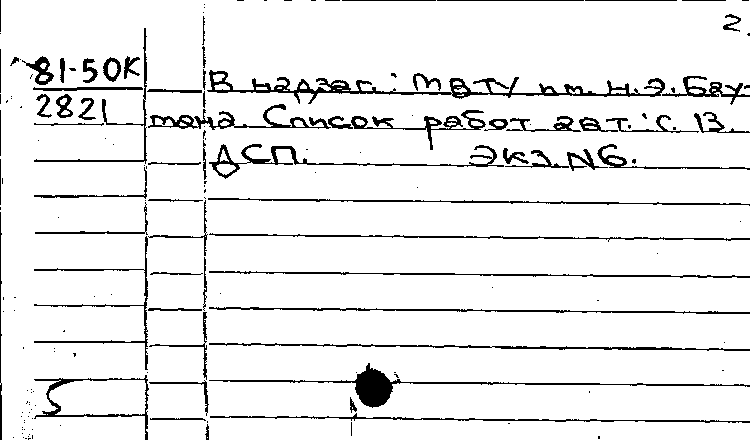 2.
81-50К В надзаг.: МВТУ им. Н.Э.Бау-
2821 мана. Список работ авт.: с. 13.
ДСП. Экз.N6.
5